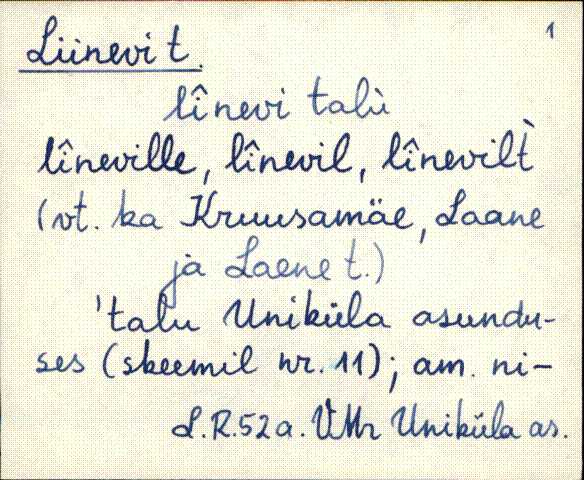 1
Liinevi t.
lînevi talù
lîneville, lînevil, lînevilt̀
(vt. ka Kruusamäe, Laane
ja Laene t.)
'talu Uniküla asundu-
ses (skeemil nr. 11); am. ni-
L.R.52a. VMr Uniküla as.